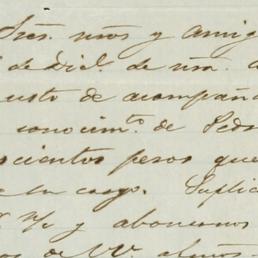 Sres. nros y amig
de Dicl. de nra.
usto de acompaña
conocimto. de Pedr
scientos pesos que
su cargo. Suplic
y abonarnos
de VV. afmos.